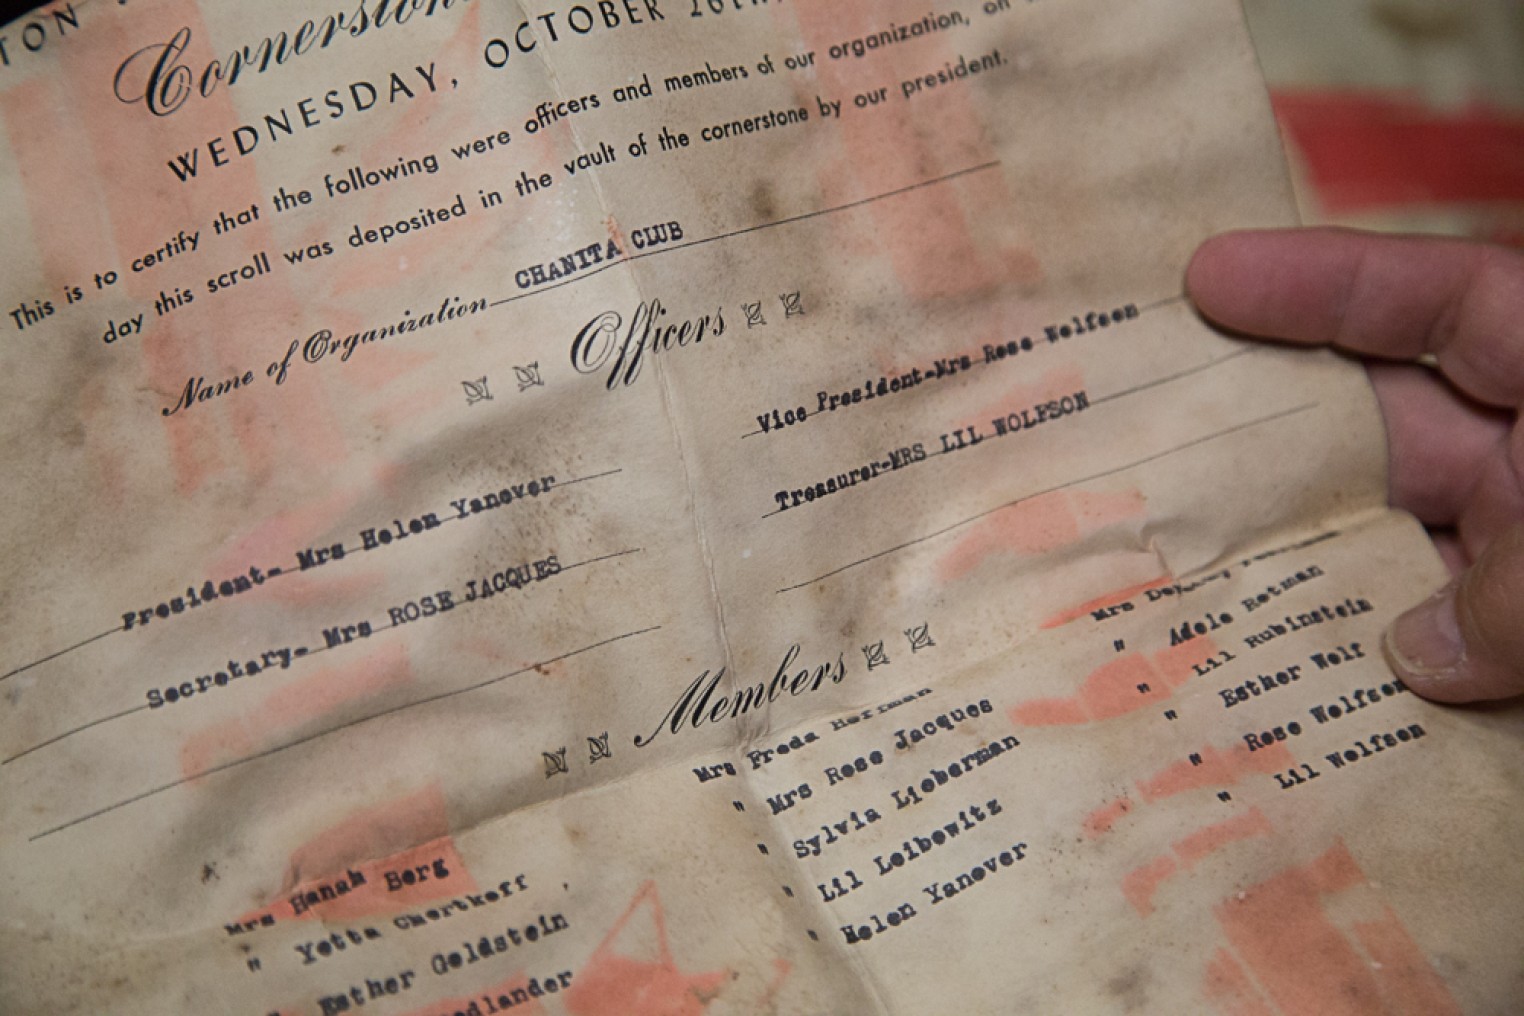 TON
Cornerston
WEDNESDAY, OCTOBER 26TH,
This is to certify that the following were officers and members of our organization, on
day this scroll was deposited in the vault of the cornerstone by our president.
Name of Organization CHANITA CLUB
Officers
President- Mrs Helen Yanover
Vice President-Mrs Rose Wolfson
Secretary- Mrs ROSE JACQUES
Treasurer-MRS LIL WOLFSON
Members
Mrs Hanah Berg
" Yetta Chertkoff
Esther Goldstein
edlander
Mrs Freda
" Mrs Rose Jacques
" Sylvia Lieberman
" Lil Leibowitz
" Helen Yanover
Mrs
" Adele Rotman
" Lil Rubinstein
" Esther Wolf
" Rose Wolfson
" Lil Wolfson